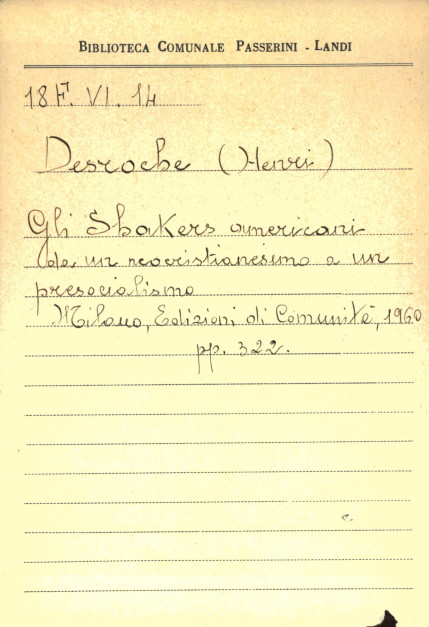 BIBLIOTECA COMUNALE PASSERINI - LANDI
18 F. VI. 14
Desroche (Henri)
Gli Shakers americani
da un neocristianesimo a un
presocialismo
Milano, Edizioni di Comunità, 1960
pp. 322.